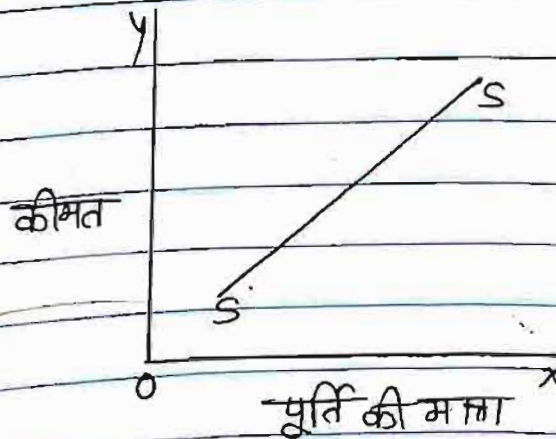 y
S
कीमत
S
O
x
पूर्ति की मात्रा